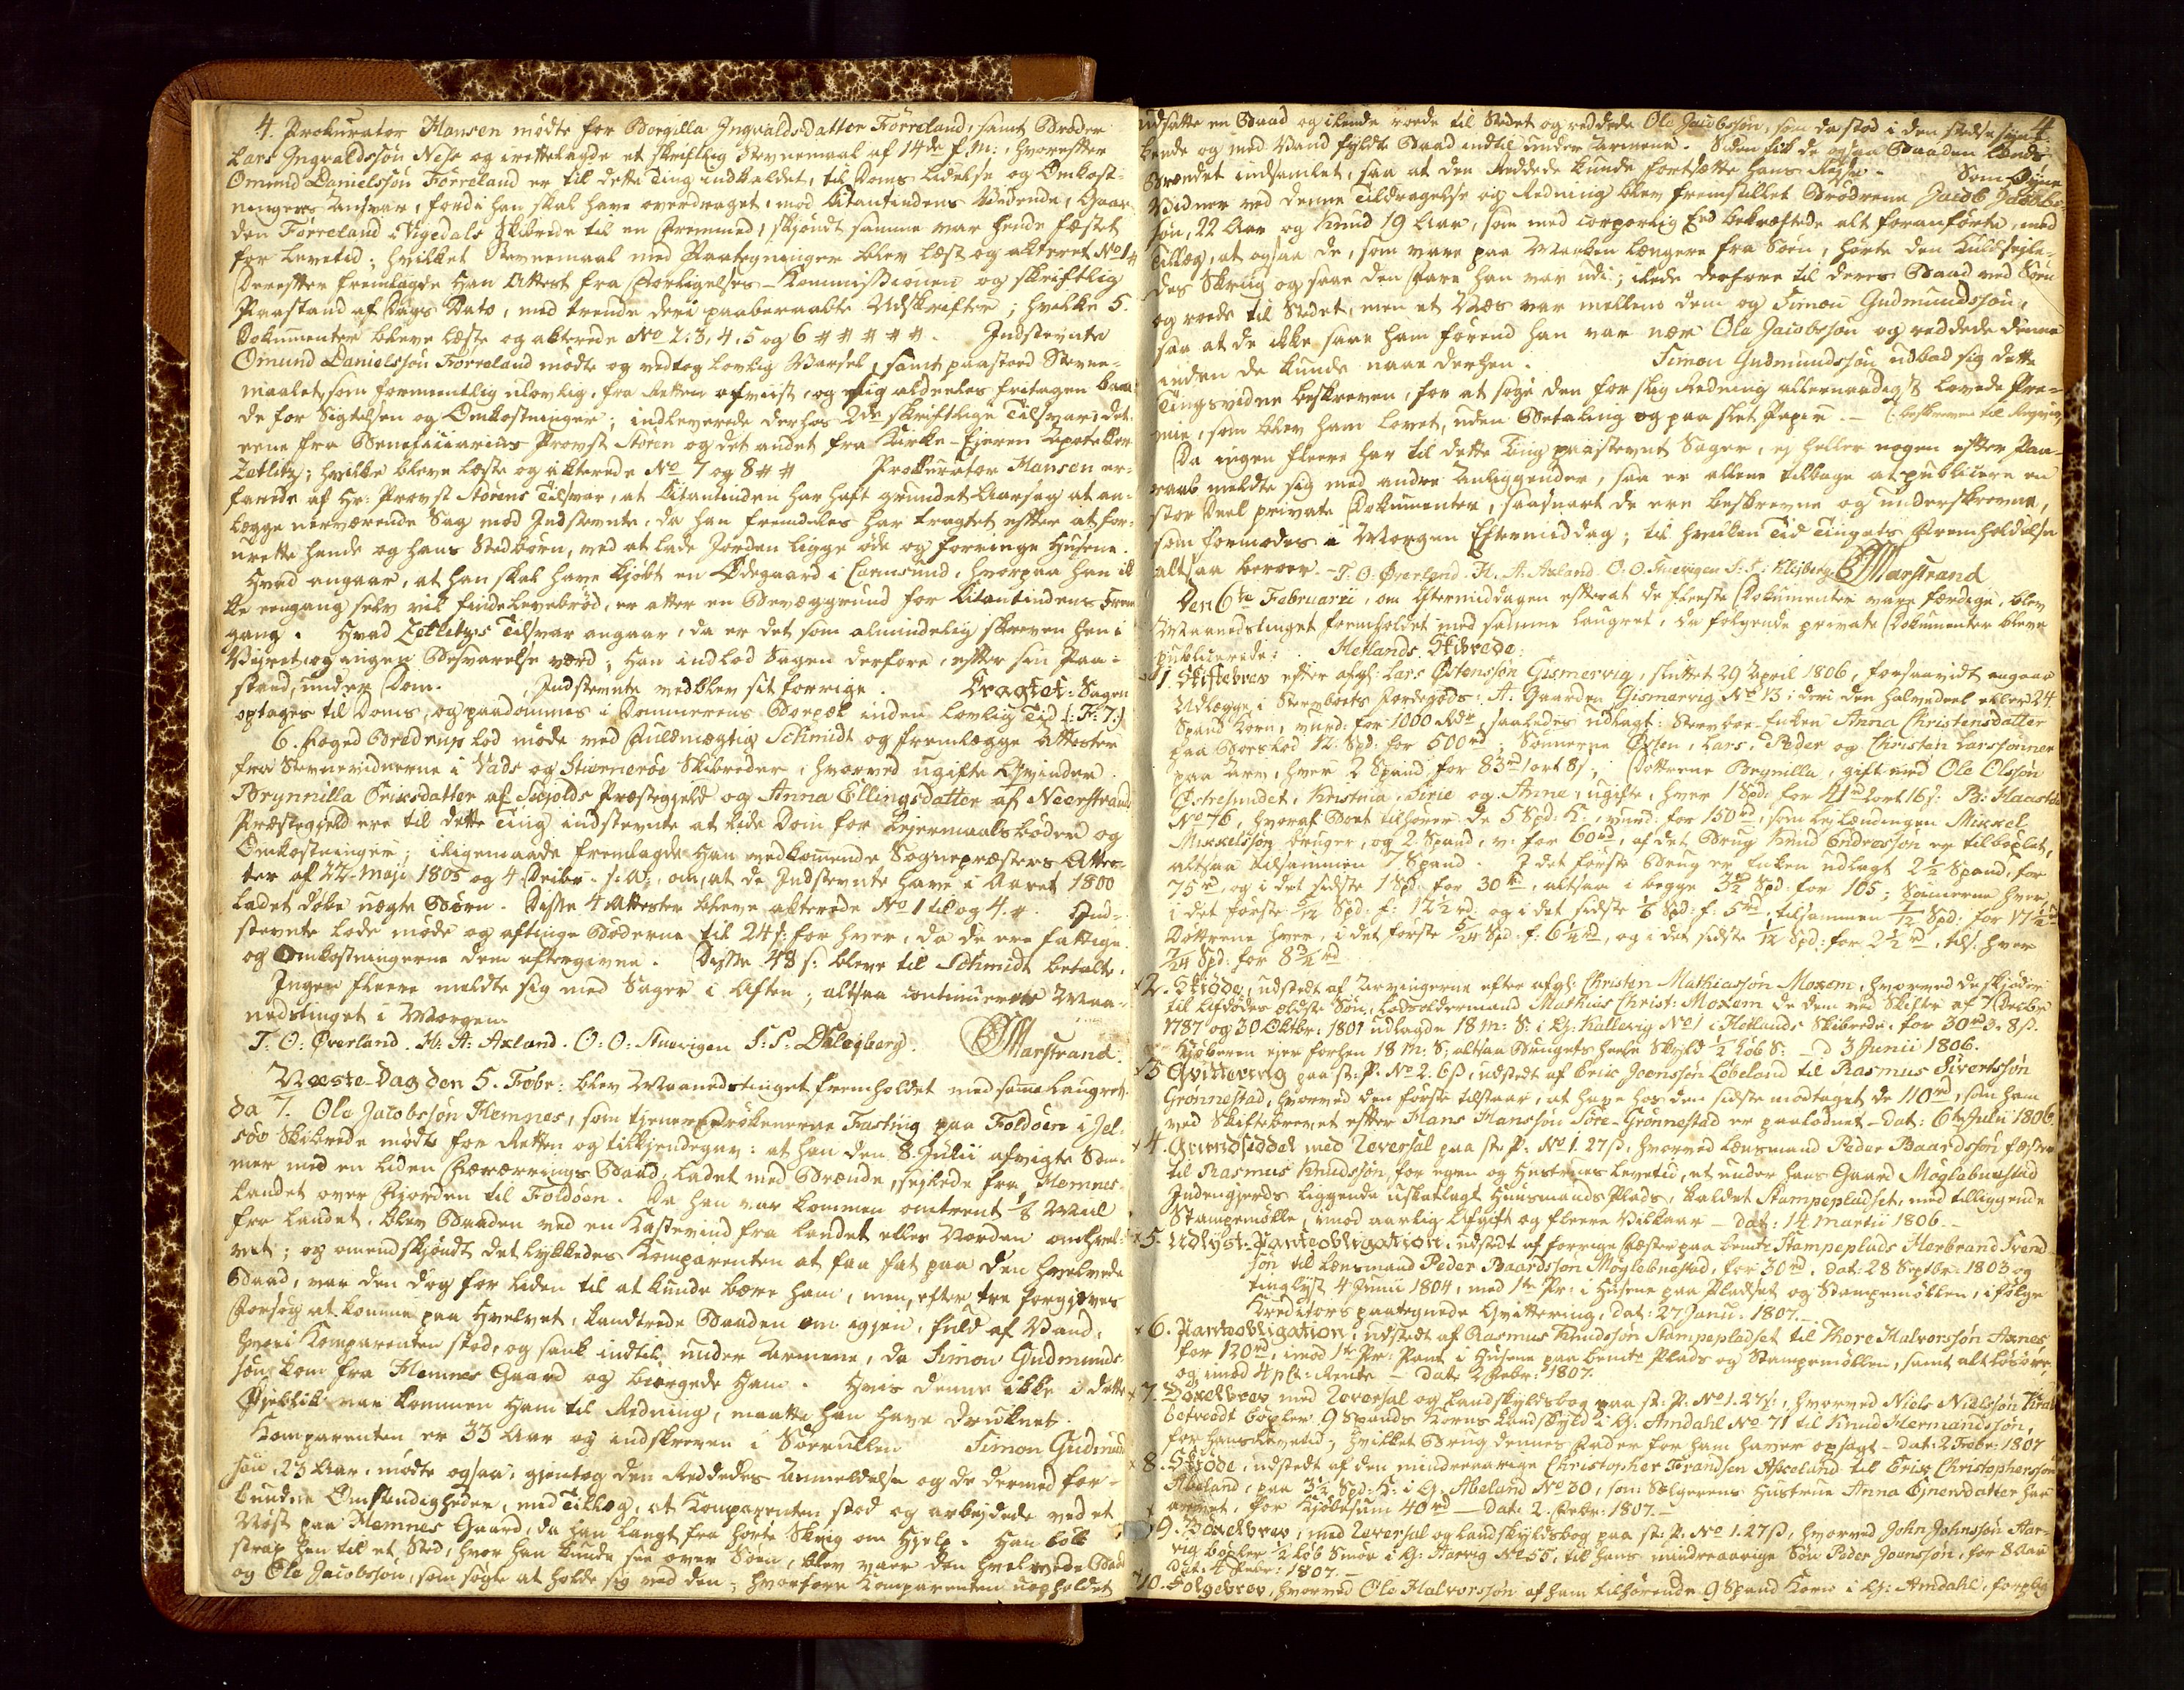 4. Prokurator Hansen mødte for Borgilla Ingvaldsdatter Førreland, samt Broder
Lars Ingvaldssøn Nese og irettelagde et skriftlig Stevnemaal af 14de f. M:, hvorefter
Omund Danielssøn Førreland er til dette Ting indkaldet, til Doms Lidelse og Omkost-
ningers Ansvar, fordi han skal have overdraget, mod Citantindens Vidende, Gaar-
den Førreland i Vigedals Skibrede til en Fremmed, skjøndt samme var hende fæstet
for Levetid; hvilket Stevnemaal med Paategninger blev læst og akteret No 1 #
Derefter fremlagde Han Attest fra Forligelses-Kommissionen og skriftlig
Paastand af Dags Dato, med trende deri paaberaabte Udskrifter; hvilke 5.
Dokumenter bleve læste og akterede No 2, 3, 4, 5 og 6 # # # # #. Indstevnte
Omund Danielssøn Førreland mødte og vedtog lovlig Varsel, samt paastod Stevne-
maalet, som formentlig ulovlig, fra Retten afviist, og sig aldeeles fritagen baa-
de for Sigtelsen og Omkostninger; indleverede derhos 2de skriftlige Tilsvar: det
eene fra Beneficiarius Provst Støren og det andet fra Kirke-Ejeren Apoteker
Zetlitz; hvilke bleve læste og akterede No 7 og 8 # # Prokurator Hansen er-
farede af Hr: Provst Størens Tilsvar, at Citantinden har haft grundet Aarsag at an-
lægge nærværende Sag mod Indstevnte, da han fremdeles har tragtet efter at for-
urette hende og hans Stedbørn, ved at lade Jorden ligge øde og forringe Husene.
Hvad angaar, at han skal have kjøbt en Ødegaard i Carmsund, hvorpaa han ik-
ke eengang selv vil finde Levebrød, er atter en Bevæggrund for Citantindens Frem-
gang. Hvad Zetlitz's Tilsvar angaar, da er det som almindelig skreven hen i
Vejret, og ingen Besvarelse værd; Han indlod Sagen derfore, efter sin Paa-
stand, under Dom. Indstevnte vedblev sit forrige. Eragtet: Sagen
optages til Doms, og paadømmes i Dommerens Bopæl inden lovlig Tid (: F: 7:)
6. Foged Bredrup lod møde ved Fuldmægtig Schmidt og fremlægge Attester
fra Stevnevidnerne i Vads og Stiernerøe Skibreder, hvorved ugifte Qvinder
Brynnilla Eriksdatter af Skjolds Præstegjeld og Anna Ellingsdatter af Neerstrands
Præstegjeld ere til dette Ting indstevnte at lide Dom for Lejermaalsbøder og
Omkostninger; iligemaade fremlagde Han vedkommende Sognepræsters Atte-
ster af 22. Maji 1805 og 4. Decbr. s: A:, om, at de Indstevnte have i Aaret 1800
ladet døbe uægte Børn. Disse 4 Attester bleve akterede No 1 til og 4. #. Ind-
stevnte lode møde og aftinge Bøderne til 24 s: for hver, da de ere fattige
og Omkostningerne dem eftergivne. Disse 48 s: bleve til Schmidt betalte.
Ingen fleere meldte sig med Sager i Aften; altsaa continuerer Maa-
nedstinget i Morgen.
T: O: Øverland. H: A: Axland. O: O: Snevigen S: S: Ehlejberg. Marstrand.
Næste-Dag den 5. Febr: blev Maanedstinget fremholdet med samme Laugret,
da 7. Ole Jacobssøn Hemnes, som tjener Frøkenerne Fasting paa Foldøen i Jel-
søe Skibrede mødte for Retten og tilkjendegav: at han den 8. Julii afvigte Som-
mer med en liden Færærings Baad, ladet med Brænde, sejlede fra Hemnes-
landet over Fjorden til Foldøen. Da han var kommen omtrent 1/8 Miil
fra Landet, blev Baaden ved en Kastevind fra Landet eller Norden omhvel-
vet; og omendskjøndt det lykkedes Komparenten at faa fat paa den hvelvede
Baad, var den dog for liden til at kunde bære ham, men, efter tre forgjeves
Forsøg at komme paa Hvelvet, kandtrede Baaden om igjen, fuld af Vand,
hvori Komparenten stod, og sank indtil under Armene, da Simon Gudmunds-
søn kom fra Hemnes Gaard og biergede Ham. Hvis denne ikke i dette
Øjeblik var kommen Ham til Redning, maatte han have druknet.
Komparenten er 33 Aar og indskreven i Sørrullen Simon Gudmund-
søn, 23 Aar, mødte ogsaa, gjentog den Reddedes Anmeldelse og de dermed for-
bundne Omstændigheder, med Tillæg, at Komparenten stod og arbejdede ved et
Nøst paa Hemnes Gaard, da han langt fra hørte Skrig om Hjelp. Han løb
strax hen til et Sted, hvor han kunde see over Søen, blev vaer den hvelvede Baad
og Ole Jacobssøn, som søgte at holde sig ved den, hvorfore Komparenten uopholdet
4.
udsatte en Baad og ilende roede til Stedet og reddede Ole Jacobssøn, som da stod i den stedse syn-
kende og med Vand fyldte Baad indtil under Armene. Siden fik de ogsaa Baaden lænds
Brændet indsamlet, saa at den Reddede kunde fortsætte hans Rejse. Som Øjne
Vidner ved denne Tildragelse og Redning blev fremstillet Brødrene Jacob Jacobs-
søn, 22 Aar og Knud 19 Aar, som med corporlig Eed bekræftede alt foranførte, med
Tillæg, at ogsaa de, som vare paa Marken længere fra Søen, hørte den Kuldsejle-
des Skrig og saae den Fare han var udi; ilede derfore til deres Baad ved Søen
og roede til Stedet, men et Næs var mellem dem og Simon Gudmundssøn,
saa at de ikke saae ham førend han var nær Ole Jacobssøn og reddede denne
inden de kunde naae derhen. Simon Gudmundssøn udbad sig dette
Tingsvidne beskreven, for at søge den for slig Redning allernaadigst lovede Præ-
mie, som blev ham lovet, uden Betaling og paa slet Papir. — (: beskreven til Requir:)
Da ingen fleere har til dette Ting paastevnt Sager, ej heller nogen efter Paa-
raab meldte sig med andre Anliggender, saa er allene tilbage at publicere en
stor Deel private Dokumenter, saasnart de ere beskrevne og underskrevne,
som formodes i Morgen Eftermiddag; til hvilken Tid Tingets Fremholdelse
altsaa beroer. - T: O: Øverland. H. A: Axland. O: O. Snevigen S: S: Ehlejberg. Marstrand
Den 6te Februarii, om Eftermiddagen efterat de fleeste Dokumenter vare færdige, blev
Maanedstinget fremholdet med samme Laugret, da følgende private Dokumenter bleve
publicerede: Hetlands Skibrede:
1. Skiftebrev efter afgl: Lars Østenssøn Gismervig, sluttet 29 April 1806, forsaavidt angaar
Udlægge i Stervboets Jordegods: A. Gaarden Gismervig No 13: deri den halvedeel eller 24.
Spand Korn, vurd: for 1000 Rdr, saaledes udlagt: Stervboe-Enken Anna Christensdatter
paa Boeslod 12 Spd: for 500 rd; Sønnerne Østen, Lars, Peder og Christen Larssønner
paa Arv, hver 2 Spand for 83 rd 1 ort 8 s; Døttrene Brynilla, gift med Ole Olssøn
Østresundet, Kristina, Sirie og Anne, ugifte, hver 1 Spd: for 41 rd 2 ort 16 s: B: Haastøe
No 76, hvoraf Boet tilhører de 5 Spd: K:, vurd: for 150 rd, som Lejlændingen Mikkel
Mikkelssøn bruger, og 2. Spand, v: for 60 rd, af det Brug Knud Endressøn er tilbøxlet,
altsaa tilsammen 7 Spand. I det første Brug er Enken udlagt 2 1/2 Spand, for
75 rd, og i det sidste 1 Spd: for 30 rd, altsaa i begge 3 1/2 Spd: for 105; Sønnerne hver
i det første 5/12 Spd: f: 12 1/2 rd, og i det sidste 1/6 Spd: f: 5 rd, tilsammen 7/12 Spd: for 17 1/2 rd
Døttrene hver, i det første 5/24 Spd: f: 6 1/4 rd, og i det sidste 1/12 Spd: for 2 1/2 rd, tils: hver
7/24 Spd: for 8 3/4 rd
2. Skjøde, udstedt af Arvingerne efter afgl: Christen Mathiassøn Moxem, hvorved de skjøder
til Afdødes ældste Søn, Lodsoldermand Mathias Christ: Moxem de dem ved Skifter af 7 Decbr
1787 og 30 Oktbr: 1801 udlagde 18 m: S: i G: Kallevig No 1 i Hetlands Skibrede, for 30 rd 3. 8 s.
Kjøberen ejer forhen 18 m: S, altsaa Brugets heele Skyld 1/2 Løb S: — d 3 Junii 1806.
3 Qvittering paa st: P. No 2. 6 s, udstedt af Eric Joenssøn Løbeland til Rasmus Sivertssøn
Grønnestad, hvorved den første tilstaar, at have hos den sidste modtaget de 110 rd, som ham
ved Skiftebrevet efter Hans Hanssøn Søre-Grønnestad er paalodnet — Dat: 6te Julii 1806.
4. Grundseddel med Reversal paa st: P: No 1. 27 s, hvorved Lensmand Peder Baardssøn fæster
til Rasmus Knudssøn, for egen og Hustrues Levetid, et under hans Gaard Møglebuestad
Indengjerds liggende uskatlagt Huusmands Plads, kaldet Stampepladset, med tilliggende
Stampemølle, imod aarlig Afgift og fleere Vilkaar — dat: 14 Martii 1806.
5. Udlyst: Panteobligation, udstedt af forrige Fæster paa bemte Stampeplads Herbrand Svend-
søn til Lensmand Peder Baardssøn Møglebuestad, for 30 rd, dat: 28 Septbr: 1803 og
tinglyst 4 Junii 1804, med 1te Pr: i Husene paa Pladset og Stampemøllen, ifølge
Kreditors paategnede Qvittering, dat: 27 Janu. 1807.
6. Panteobligation, udstedt af Rasmus Knudssøn Stampepladset til Thore Halvorssøn Axnes
for 120 rd, imod 1te Pr: Pant i Husene paa bemte Plads og Stampemøllen, samt alt Løsøre,
og imod 4 p Ct: Rente — dat: 2 Febr: 1807.
7. Bøxelbrev med Reversal og Landskyldsbog paa st: P. No 1. 27 s:, hvorved Niels Nielssøn
betroedt bøxler 9 Spands Korns Landskyld i G: Amdahl No 71 til Knud Hermandssøn,
for hans Levetid, hvilket Brug dennes Fader for ham haver opsagt — dat: 2 Febr: 1807
8. Skjøde, udstedt af den mindreaarige Christopher Frandsen Apeland til Erik Christophersøn
Abeland, paa 3 1/2 Spd: K: i G: Abeland No 30, som Sælgerens Hustrue Anna Ejnersdatter har
arvet, for Kjøbesum 40 rd — dat: 2. Febr: 1807.
9. Bøxelbrev, med Reversal og Landskyldsbog paa st: P. No 1. 27 s, hvorved John Johnssøn Aar-
vig bøxler 1/2 Løb Smør i G: Aarvig No 55, til hans mindreaarige Søn Peder Joenssøn, for 8 Aar
dat: 4 Febr: 1807.
10. Følgebrev, hvorved Ole Halvorssøn af ham tilhørende 9 Spand Korn i G: Amdahl, forplig